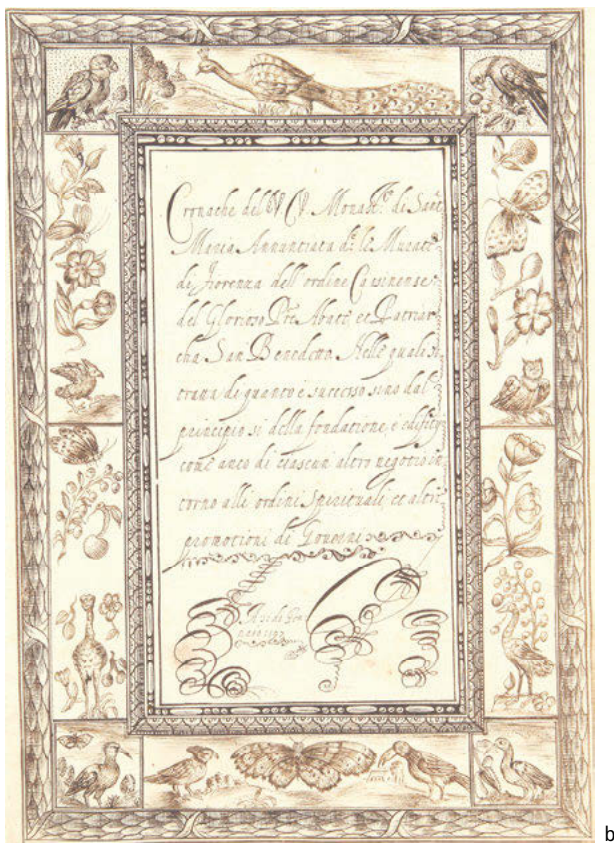 Cronache del V. CV. Monast.º di Sant
Maria Annuntiata d. le Murate
di Fiorenza dell ordine Casinense
del Glorioso Pre Abate et Patriar
cha San Benedetto. Nelle quale si
tratta di quanto e sucesso sino dal
principio si della fondatione, e edifity
come anco di ciascun altro negotio in
torno alli ordini Spirituali, et altre
promotioni di Governi
b